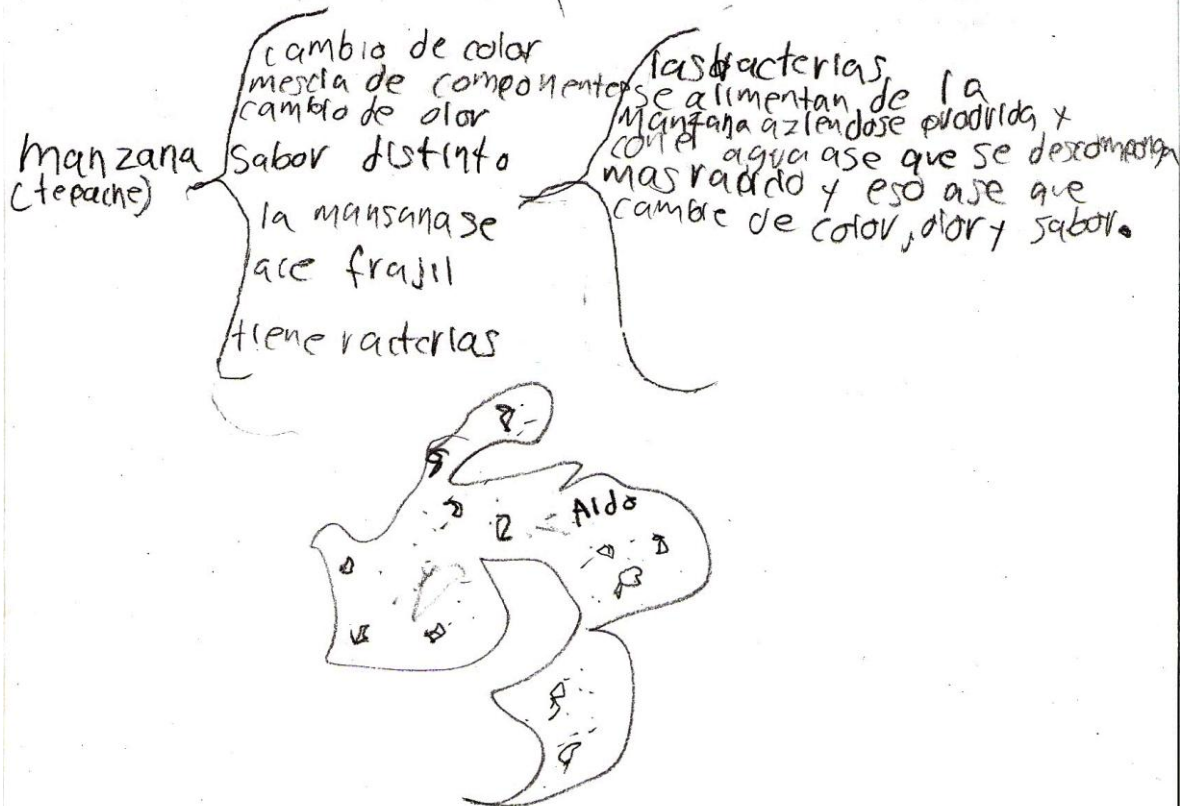 manzana
(tepache)
cambio de color
mescla de componentes
cambio de olor
Sabor distinto
la mansana se
ace frajil
tiene racterias
las bacterias
se alimentan de la
manzana aziendose prodrida y
con el agua ase que se descomponga
mas rapido y eso ase que
cambie de color, olor y sabor.
Aldo